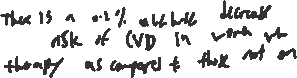 There is a 0.2% absolute decrease
risk of CVD in women who
therapy as compared to those not on